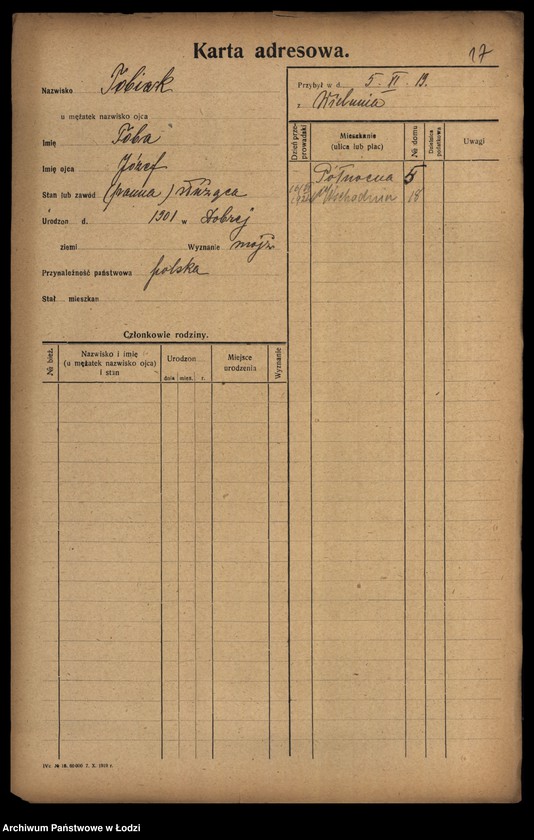 Karta adresowa.
17
Nazwisko Tobiark
u mężatek nazwisko ojca
Imię Toba
Imię ojca Józef
Stan lub zawód (panna) służąca
Urodzon d. 1901 w Dobrej
ziemi Wyznanie mojż
Przynależność państwowa polska
Stał mieszkan
Członkowie rodziny.
№ bież. Nazwisko i imię (u mężatek nazwisko ojca) i stan Urodzon dnia mies. r. Miejsce urodzenia Wyznanie
Przybył w d. 5 VI 19.
z Wielunia
Dzień przeprowadzki Mieszkanie (ulica lub plac) № domu Dzielnica podatkowa Uwagi
Północna 5
Wschodnia 18
7. X. 1918 r.
Archiwum Państwowe w Łodzi